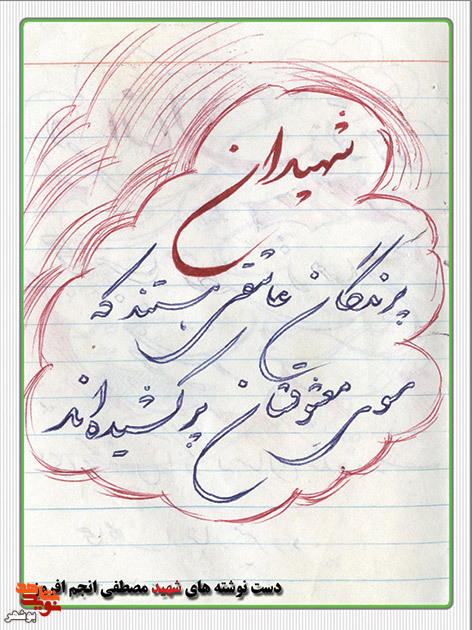 شهیدان
پرندگان عاشقی هستند که
سوی معشوقشان پر کشیده اند
دست نوشته های شهید مصطفی انجم افروز
نوید شاهد
بوشهر